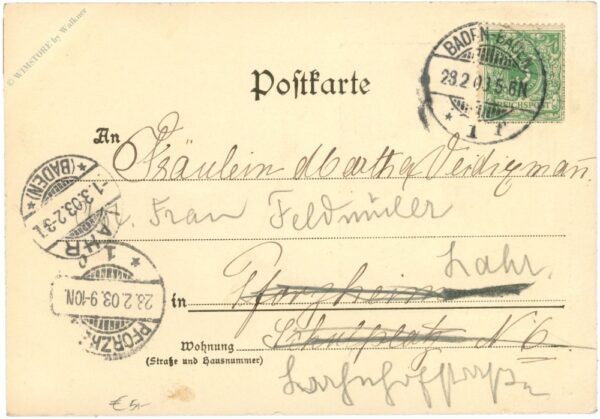 © WIMSTORE by Walkner
Postkarte
BADEN-BADEN
28.2.03.5-6N
* 1 r
REICHSPOST
An
Fräulein Martha
Frau Feldmüller
* (BADEN) *
-1.3.03.2-3
LAHR
Lahr.
28.2.03.9-10N.
PFORZHE
in Pforzheim
Wohnung Schulplatz N 6
(Straße und Hausnummer)
€ 5,-